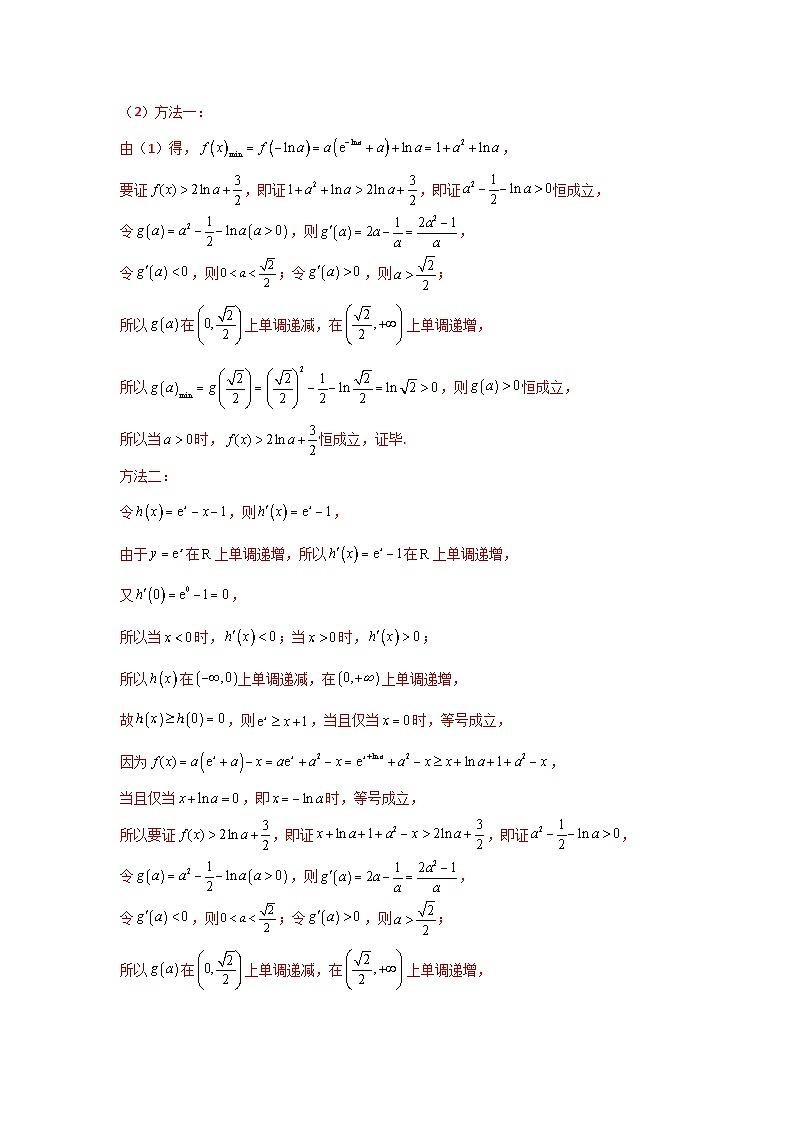 （2）方法一：
由（1）得，f(x)_min = f(−ln a) = a(e^{−ln a} + a) + ln a = 1 + a² + ln a，
要证 f(x) > 2ln a + 3/2，即证 1 + a² + ln a > 2ln a + 3/2，即证 a² − 1/2 − ln a > 0 恒成立，
令 g(a) = a² − 1/2 − ln a (a > 0)，则 g′(a) = 2a − 1/a = (2a² − 1)/a，
令 g′(a) < 0，则 0 < a < √2/2；令 g′(a) > 0，则 a > √2/2；
所以 g(a) 在 (0, √2/2) 上单调递减，在 (√2/2, +∞) 上单调递增，
所以 g(a)_min = g(√2/2) = (√2/2)² − 1/2 − ln √2/2 = ln √2 > 0，则 g(a) > 0 恒成立，
所以当 a > 0 时，f(x) > 2ln a + 3/2 恒成立，证毕.
方法二：
令 h(x) = e^x − x − 1，则 h′(x) = e^x − 1，
由于 y = e^x 在 R 上单调递增，所以 h′(x) = e^x − 1 在 R 上单调递增，
又 h′(0) = e⁰ − 1 = 0，
所以当 x < 0 时，h′(x) < 0；当 x > 0 时，h′(x) > 0；
所以 h(x) 在 (−∞, 0) 上单调递减，在 (0, +∞) 上单调递增，
故 h(x) ≥ h(0) = 0，则 e^x ≥ x + 1，当且仅当 x = 0 时，等号成立，
因为 f(x) = a(e^x + a) − x = ae^x + a² − x = e^{x+ln a} + a² − x ≥ x + ln a + 1 + a² − x，
当且仅当 x + ln a = 0，即 x = −ln a 时，等号成立，
所以要证 f(x) > 2ln a + 3/2，即证 x + ln a + 1 + a² − x > 2ln a + 3/2，即证 a² − 1/2 − ln a > 0，
令 g(a) = a² − 1/2 − ln a (a > 0)，则 g′(a) = 2a − 1/a = (2a² − 1)/a，
令 g′(a) < 0，则 0 < a < √2/2；令 g′(a) > 0，则 a > √2/2；
所以 g(a) 在 (0, √2/2) 上单调递减，在 (√2/2, +∞) 上单调递增，